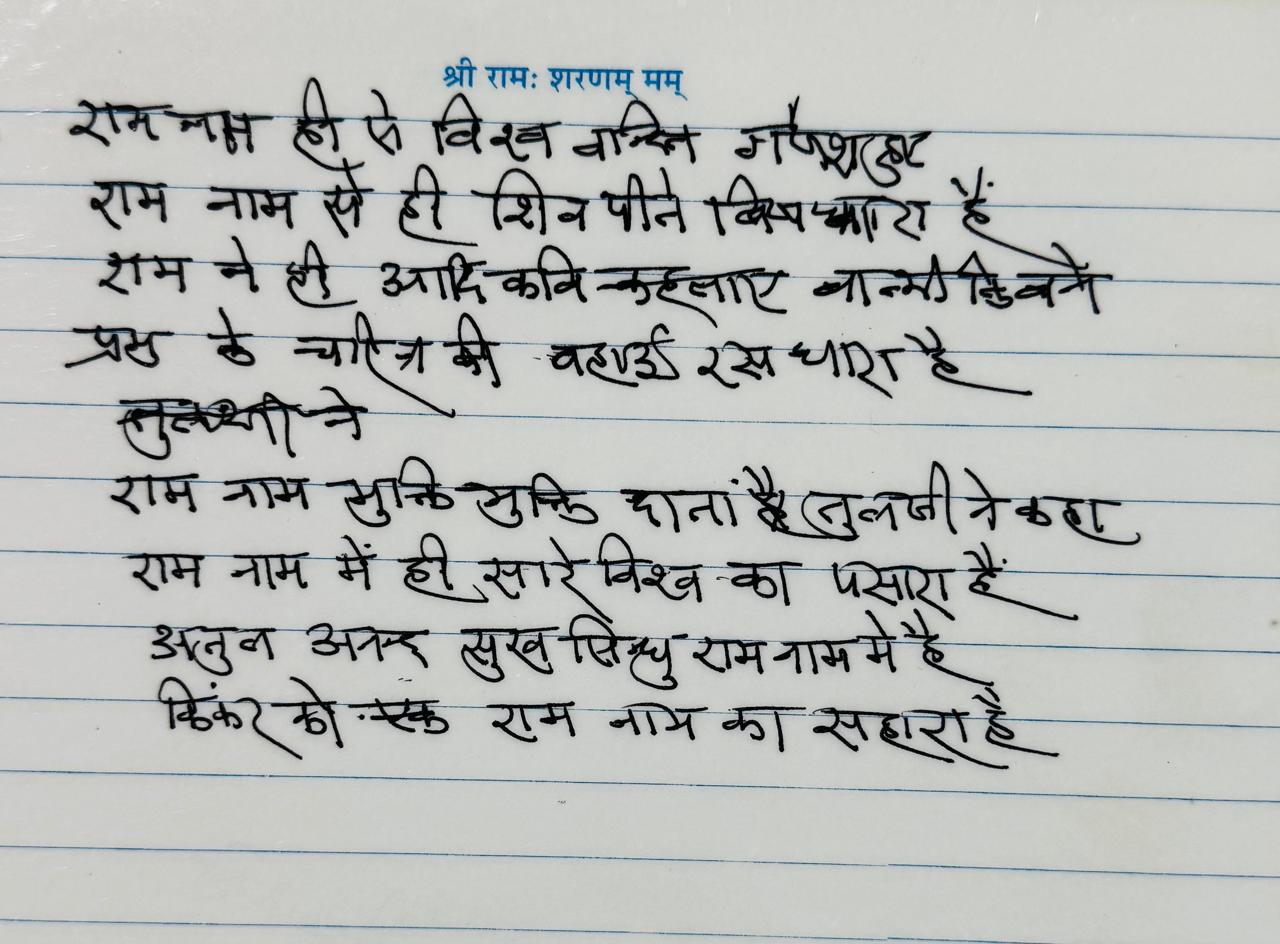 श्री रामः शरणम् मम्
राम नाम ही से विश्व वन्दित गणेश हुए
राम नाम से ही शिव पीते विष धारा हैं
राम ने ही आदि कवि कहलाए वाल्मीकि बने
प्रभु के चरित्र की वहाई रस धारा है
राम नाम भुक्ति मुक्ति दाता है तुलसी ने कहा
राम नाम में ही सारे विश्व का पसारा हैं
अतुल आनन्द सुख सिन्धु राम नाम में है
किंकर को एक राम नाम का सहारा है